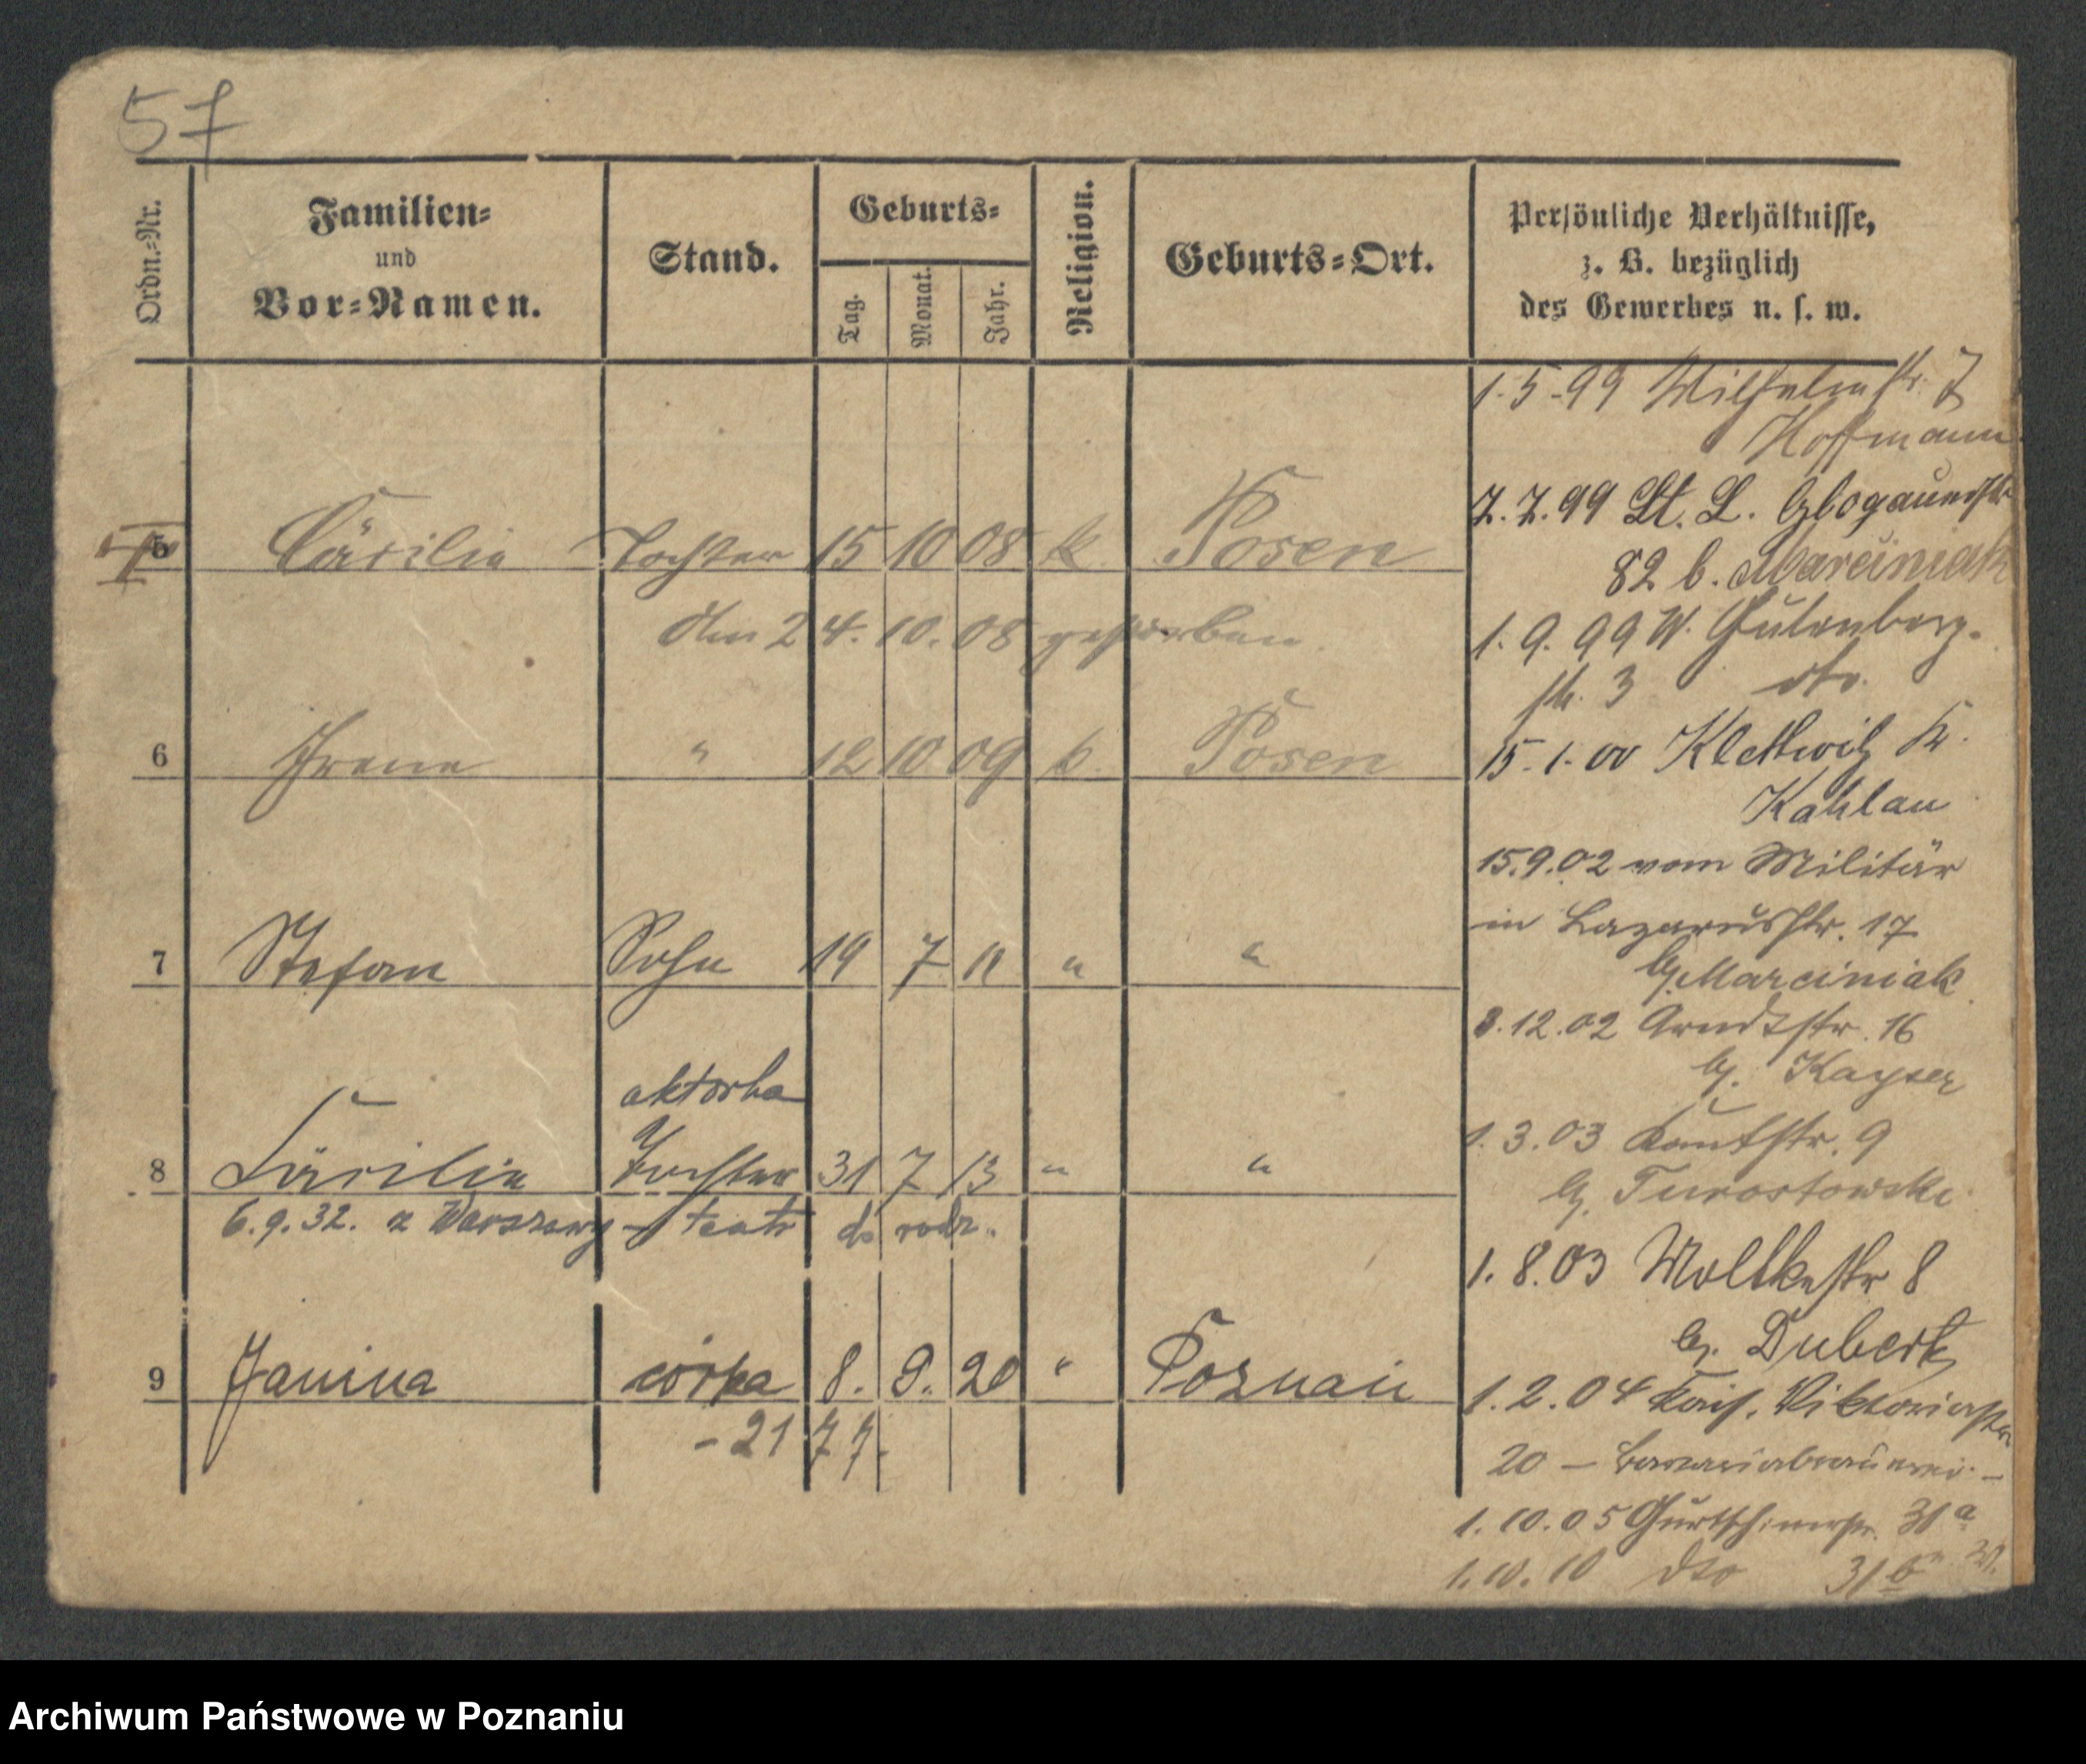 57
Ordn.=Nr.
Familien=
und
Vor=Namen.
Stand.
Geburts=
Tag.
Monat.
Jahr.
Religion.
Geburts=Ort.
Persönliche Verhältnisse,
z. B. bezüglich
des Gewerbes u. s. w.
5 Cäcilie Tochter 15 10 08 k. Posen
den 24. 10. 08 gestorben.
6 Irene " 12 10 09 k. Posen
7 Stefan Sohn 19 7 11 " "
aktorka
8 Cäcilie Tochter 31 7 13 " "
6.9.32. z Warszawy - teatr do rodz.
9 Janina córka 8. 9. 20 " Poznań
- 21 77.
1.5.99 Wilhelmstr. 7
Hoffmann
7.7.99 St. L. Glogauerstr
82 b. Marciniak
1.9.99 W. Gutenberg-
str. 3 dto.
15.1.00 Klettwitz K.
Kahlau
15.9.02 vom Militär
in Lazarusstr. 17
b. Marciniak
8.12.02 Arndtstr. 16
b. Kayser
1.3.03 Kantstr. 9
b. Turostowski
1.8.03 Moltkestr 8
b. Dubert
1.2.04 Kais. Viktoriastr
20 —
1.10.05 Gurtschinerstr. 31a
1.10.10 dto 31b
Archiwum Państwowe w Poznaniu